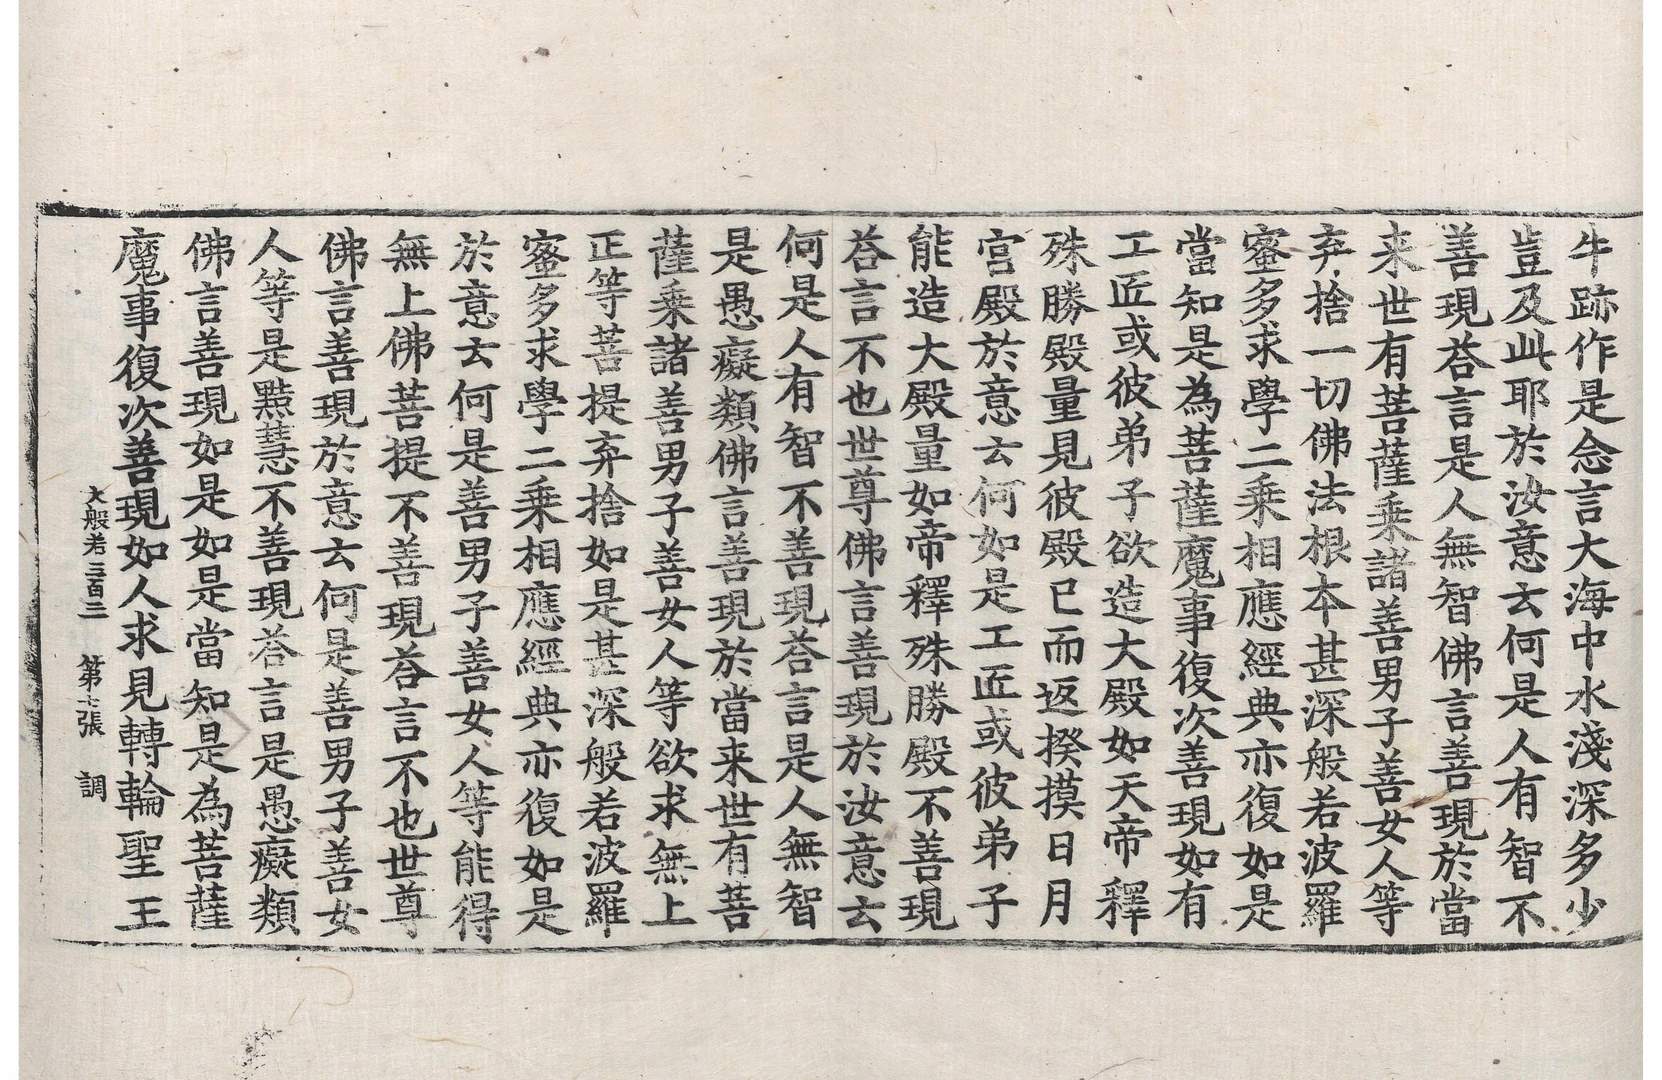 牛跡作是念言大海中水淺深多少
豈及此耶於汝意云何是人有智不
善現荅言是人無智佛言善現於當
来世有菩薩乘諸善男子善女人等
弃捨一切佛法根本甚深般若波羅
蜜多求學二乘相應經典亦復如是
當知是為菩薩魔事復次善現如有
工匠或彼弟子欲造大殿如天帝釋
殊勝殿量見彼殿已而返揆摸日月
宫殿於意云何如是工匠或彼弟子
能造大殿量如帝釋殊勝殿不善現
荅言不也世尊佛言善現於汝意云
何是人有智不善現荅言是人無智
是愚癡類佛言善現於當来世有菩
薩乘諸善男子善女人等欲求無上
正等菩提弃捨如是甚深般若波羅
蜜多求學二乘相應經典亦復如是
於意云何是善男子善女人等能得
無上佛菩提不善現荅言不也世尊
佛言善現於意云何是善男子善女
人等是黠慧不善現荅言是愚癡類
佛言善現如是如是當知是為菩薩
魔事復次善現如人求見轉輪聖王
大般若三百三 第七張 調